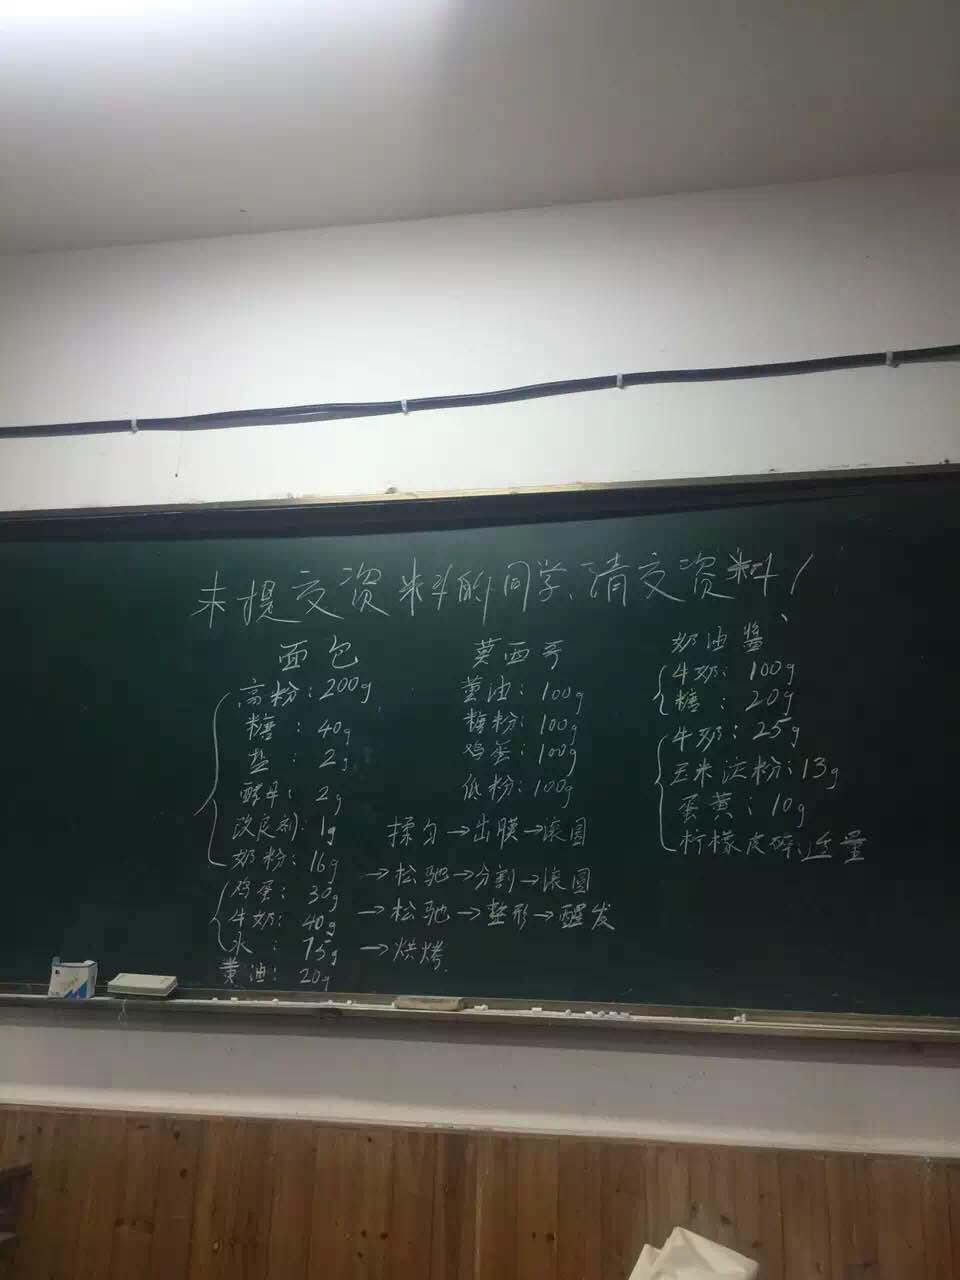 未提交资料的同学、请交资料!
面包
高粉:200g
糖:40g
盐:2g
酵母:2g
改良剂:1g
奶粉:16g
鸡蛋:30g
牛奶:40g
水:75g
黄油:20g
莫西哥
黄油:100g
糖粉:100g
鸡蛋:100g
低粉:100g
揉匀→出膜→滚圆
→松驰→分割→滚圆
→松驰→整形→醒发
→烘烤.
奶油酱
牛奶:100g
糖:20g
牛奶:25g
玉米淀粉:13g
蛋黄:10g
柠檬皮碎:适量